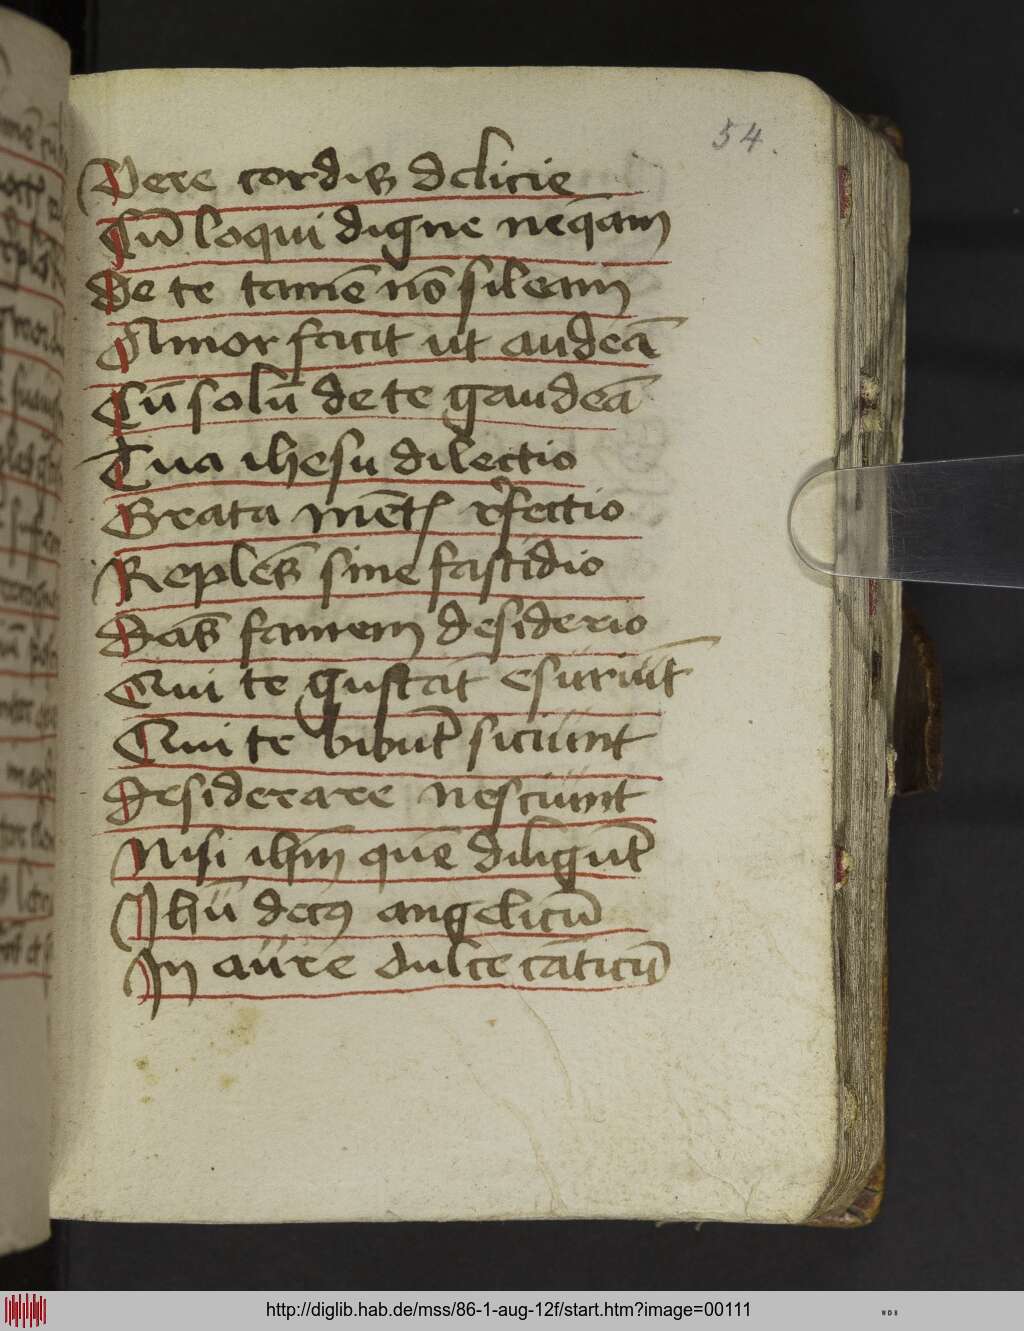 54.
Vere cordis delicie
Cū loqui digne neq̄am
de te tamē nō sileam
Amor facit ut audeā
Cū solū de te gaudeā
Tua ihesu dilectio
Grata mēt refectio
Reples sine fastidio
Das famem desiderio
Qui te gustāt esuriūt
Qui te bibūt siciunt
desiderare nesciunt
Nisi ihm̄ quē diligūt
Ihū decꝰ angelicū
In aure dulce cāticū
http://diglib.hab.de/mss/86-1-aug-12f/start.htm?image=00111